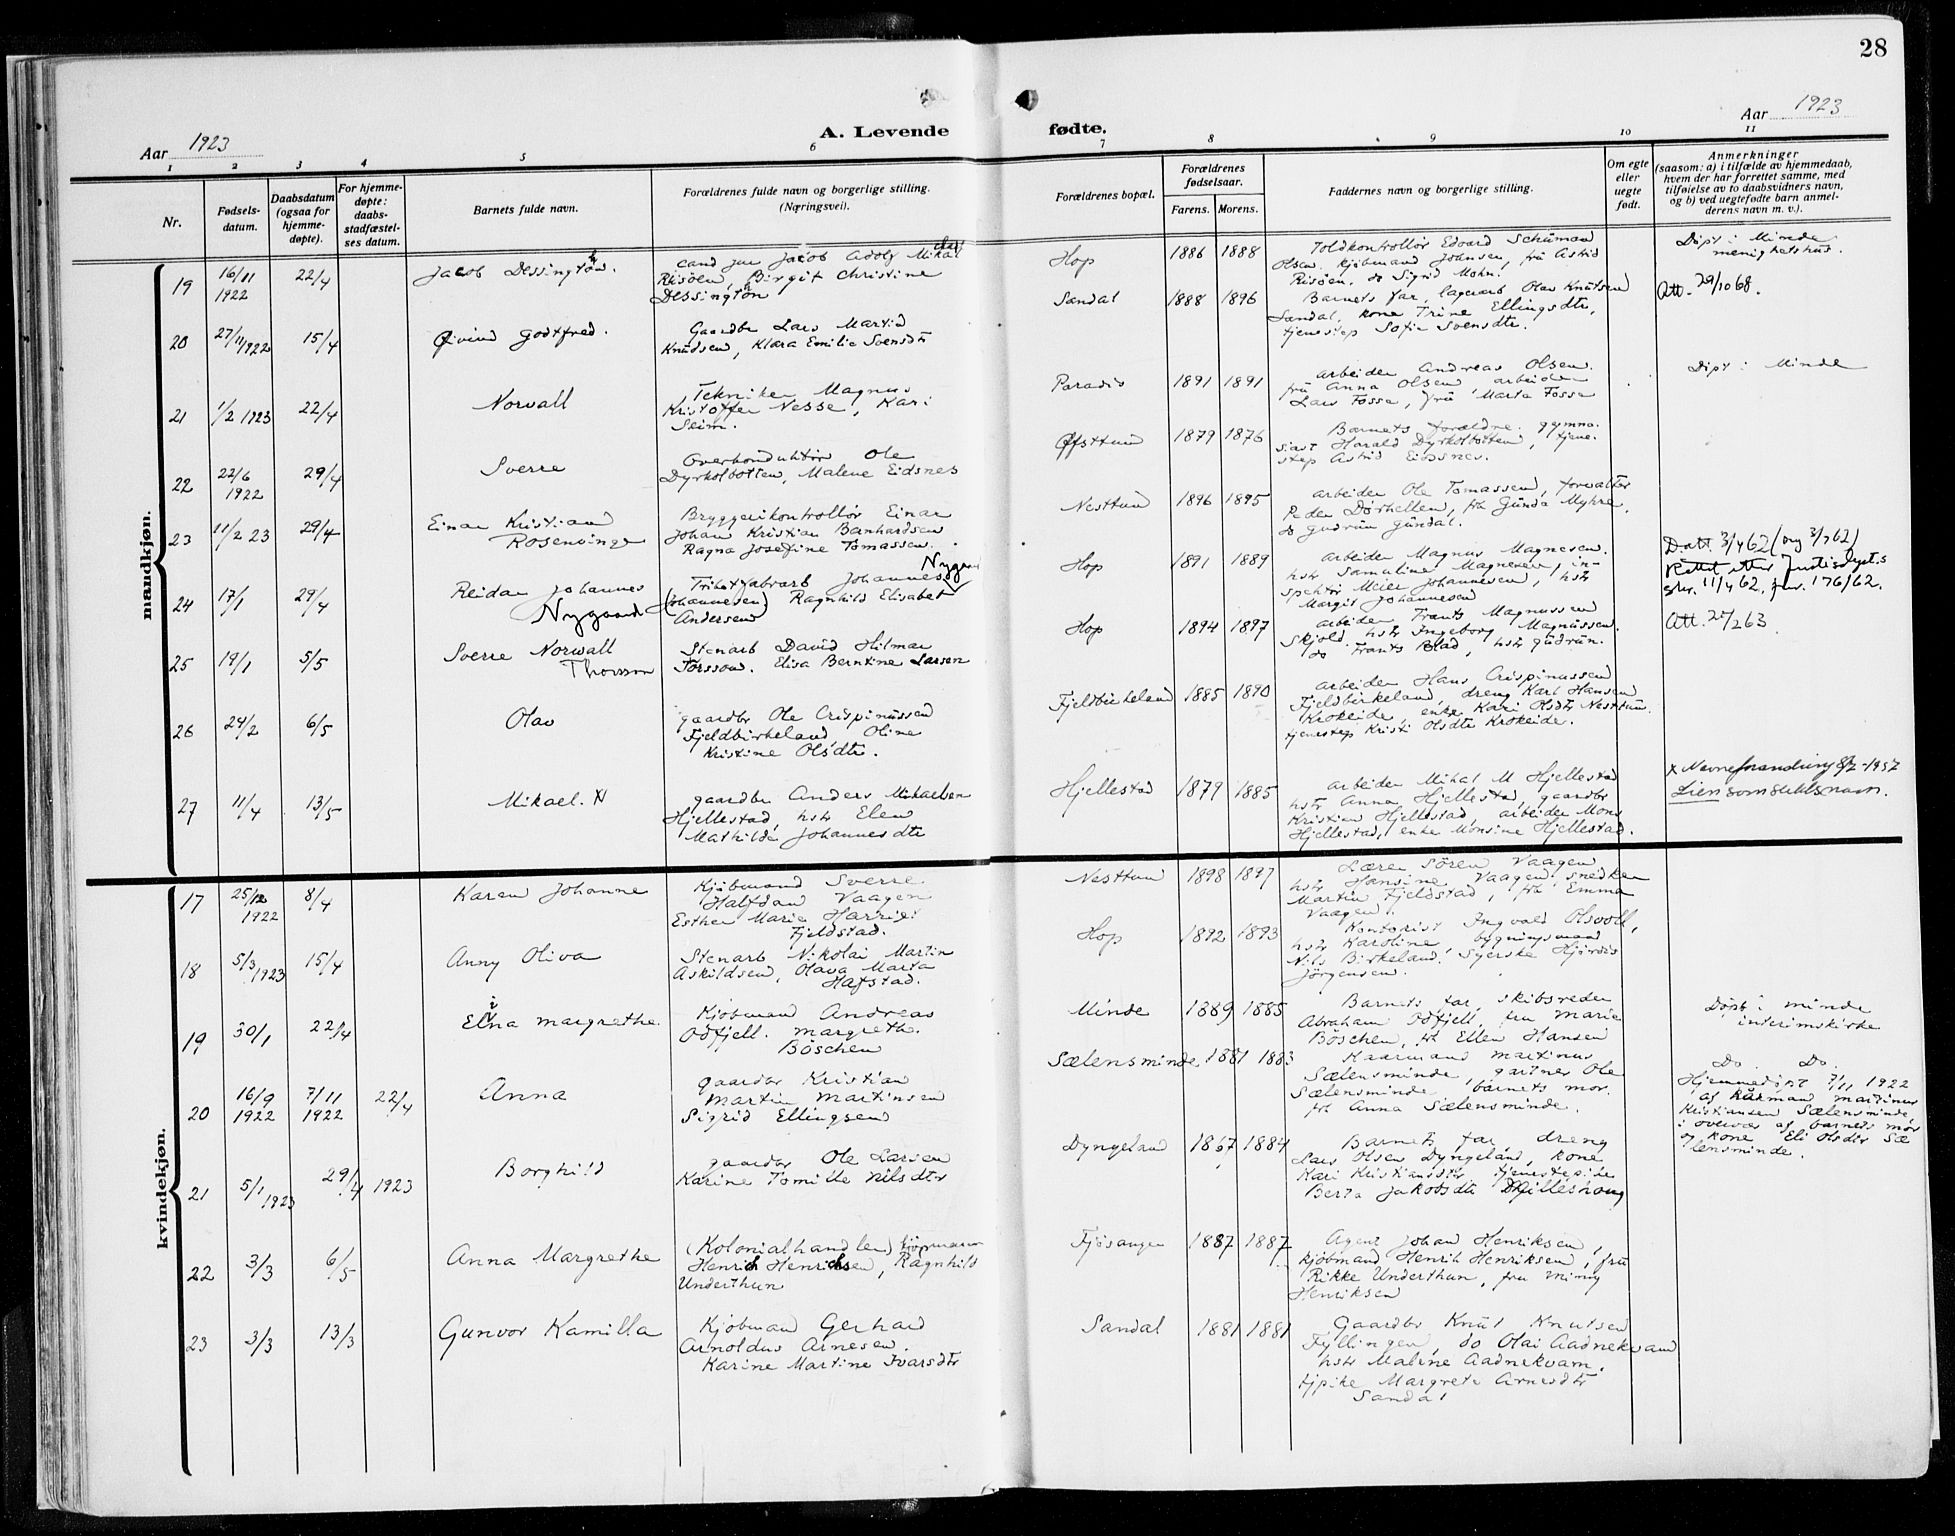 28
Aar 1923
A. Levende
fødte.
Aar 1923
1 2 3 4 5 6 7 8 9 10 11
Nr.
Fødsels-
datum.
Daabsdatum
(ogsaa for
hjemme-
døpte).
For hjemme-
døpte:
daabs-
stadfæstel-
ses datum.
Barnets fulde navn.
Forældrenes fulde navn og borgerlige stilling.
(Næringsvei).
Forældrenes bopæl.
Forældrenes
fødselsaar.
Farens. Morens.
Faddernes navn og borgerlige stilling.
Om egte
eller
uegte
født.
Anmerkninger
(saasom: a) i tilfælde av hjemmedaab,
hvem der har forrettet samme, med
tilføielse av to daabsvidners navn,
og b) ved uegtefødte barn anmel-
derens navn m. v.).
mandkjøn.
19 16/11 1922 22/4
Jacob Dessingthon.
cand jur Jacob Adolf Mikal
Risøen, Birgit Christine
Dessingthon
Hop 1886 1888
Toldkontrollør Edvard Schuman
Olsen, kjøbmand Johnsen, frü Astrid
Risøen, do Sigrid Mohn.
Döpt i Minde
menighetshus.
20 27/11 1922 15/4
Øivind Godtfred.
Gaardbr Lars Martin
Knüdsen, Klara Emilie Svensdtr
Sandal 1888 1896
Barnets far, lagerarb Olav Knütsen
Sandal, kone Trine Ellingsdtr,
tjenestep Sofie Svensdtr.
Att. 29/10 68.
21 1/2 1923 22/4
Norvall
Tekniker Magnus
Kristoffer Nesse, Kari
Seim.
Paradis 1891 1891
arbeider Andreas Olsen.
frü Anna Olsen, arbeider
Lars Fosse, frü Marta Fosse
Döpt i Minde
22 22/6 1922 29/4
Sverre
Overkonduktør Ole
Dyrkolbotten, Malene Eidsnes
Øfsttun 1879 1876
Barnets forældre. gymna-
siast Harald Dyrkolbotten, tjene-
step Astrid Eidsnes.
23 11/2 23 29/4
Einar Kristian
Rosenvinge
Bryggerikontrollör Einar
Johan Kristian Banhardsen
Ragna Josefine Tomassen.
Nesttun 1896 1895
arbeider Ole Tomassen, forvalter
Peder Dörhellen, frk Günda Myhre,
do Gudrün Gündal.
24 17/1 29/4
Reidar Johannes
Nygaard
Trikotfabrarb Johannes Nygaard
(Johannesen) Ragnhild Elisabet
Andersen
Hop 1891 1889
arbeider Magnus Magnesen.
hstr Samuline Magnesen, in-
spektør Meier Johannesen, hstr
Margit Johannesen
D.att. 3/4 62 (og 3/7 62)
Rettet etter Justisdept.s
skr. 11/4 62, jnr. 176/62.
25 19/1 5/5
Sverre Norvall
Thorsson
Stenarb David Hilmar
Torsson. Elisa Berntine Larsen
Hop 1894 1897
arbeider Frants Magnüssen
Skjold, hstr Ingeborg Magnüssen.
do Frants Blad, hstr Güdrün.
Att. 25/2 63
26 24/2 6/5
Olav
gaardbr Ole Crispinüssen
Fjeldbirkeland Oline
Kristine Olsdtr.
Fjeldbirkeland 1885 1890
arbeider Hans Crispinussen
Fjeldbirkeland, dreng Karl Hansen
Krokeide, enke Kari Olsdtr Nesttün.
tjenestep Kristi Olsdtr Krokeide.
27 11/4 13/5
Mikael. x
gaardbr Anders Mikaelsen
Hjellestad, hstr Elen
Mathilde Johannesdtr
Hjellestad 1879 1885
arbeider Mikal M Hjellestad
hstr Anna Hjellestad, gaardbr
Kristian Hjellestad, arbeider Mons
Hjellestad, enke Monsine Hjellestad.
x Navneforandring 8/2-1957
Lien som slektsnavn.
kvindekjøn.
17 25/12 1922 8/4
Karen Johanne
Kjøbmand Sverre
Halfdan Vaagen
Esther Marie Harriet
Fjeldstad.
Nesttun 1898 1897
Lærer Sören Vaagen
hstr Hansine Vaagen, snedker
Martin Fjeldstad, frk Emma
Vaagen.
18 5/3 1923 15/4
Anny Oliva
Stenarb Nikolai Martin
Askildsen, Olava Marta
Hafstad.
Hop 1892 1893
Kontorist Ingvald Olsvoll,
hstr Karoline, bygningsmand
Nils Birkeland. Syerske Hjördis
Jörgensen.
19 30/1 22/4
Elina Margrethe.
Kjøbmand Andreas
Odfjell. Margrethe
Böschen
Minde 1889 1885
Barnets far, skibsreder
Abraham Odfjell, fru Marie
Böschen, frk Ellen Hansen
Döpt i Minde
interimskirke
20 16/9 1922 7/11 1922 22/4
Anna
gaardbr Kristian
Martin Martinsen
Sigrid Ellingsen
Sælensminde 1881 1883
Kaarmand Martinus
Sælensminde, gartner Ole
Sælensminde, barnets mor.
frk Anna Sælensminde.
Do Do.
Hjemmedöpt 7/11 1922
af Kårmand Martinus
Kristiansen Sælensminde
i overvær af barnets mor
og kone Eli Olsdtr Sæ
lensminde.
21 5/1 1923 29/4 1923
Borghild
gaardbr Ole Larsen
Karine Tomille Nilsdtr
Dyngeland 1867 1884
Barnets far, dreng
Lars Olsen Dyngeland, kone
Kari Kristiansdtr, tjenestepike
Berta Jakobsdtr
22 3/3 6/5
Anna Margrethe
(Kolonialhandler) kjøpmann
Henrich Henrichsen, Ragnhild
Underthun
Fjøsanger 1887 1887
Agent Johan Henriksen,
kjöbmand Henrik Henriksen, frü
Rikke Underthun, fru Minny
Henriksen
23 3/3 13/3
Gunvor Kamilla
Kjøbmand Gerhard
Arnoldus Arnesen.
Karine Martine Ivarsdtr
Sandal 1881 1881
Gaardbr Knüt Knutsen
Fyllingen, do Olai Aadnekvam
hstr Malene Aadnekvam.
tjpike Margrete Arnesdtr
Sandal